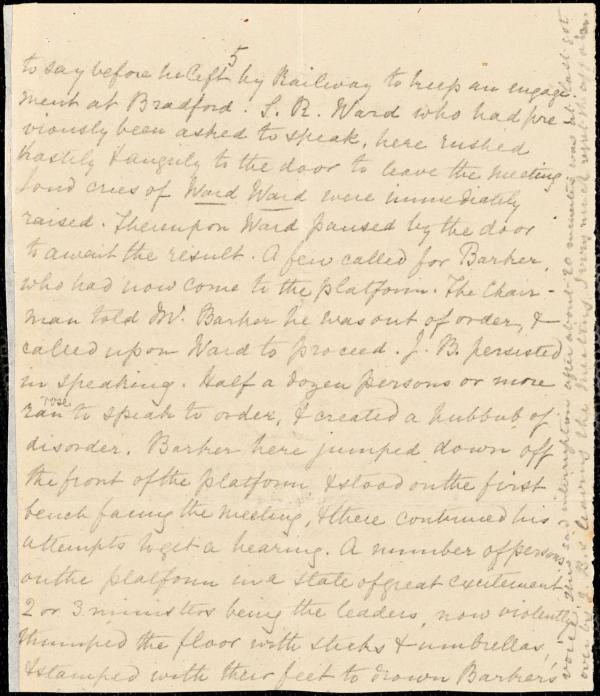 5
to say before he left by Railway to keep an engage
ment at Bradford. S. R. Ward who had pre
viously been asked to speak, here rushed
hastily & angrily to the door to leave the meeting
Loud cries of Ward Ward were immediately
raised. Thereupon Ward paused by the door
to await the result. A few called for Barker,
who had now come to the platform. The Chair-
man told Mr. Barker he was out of order, &
called upon Ward to proceed. J. B. persisted
in speaking. Half a dozen persons or more
ran rose to speak to order, & created a hubbub of
disorder. Barker here jumped down off
the front of the platform & stood on the first
bench facing the meeting, & there continued his
attempts to get a hearing. A number of persons
on the platform in a state of great excitement
2 or 3 ministers being the leaders, now violently
thumped the floor with sticks & umbrellas,
& stamped with their feet to drown Barker's
voice. This sad interruption after about 20 minutes was at last got
over by J. B's leaving the meeting. I very much regret the affair.